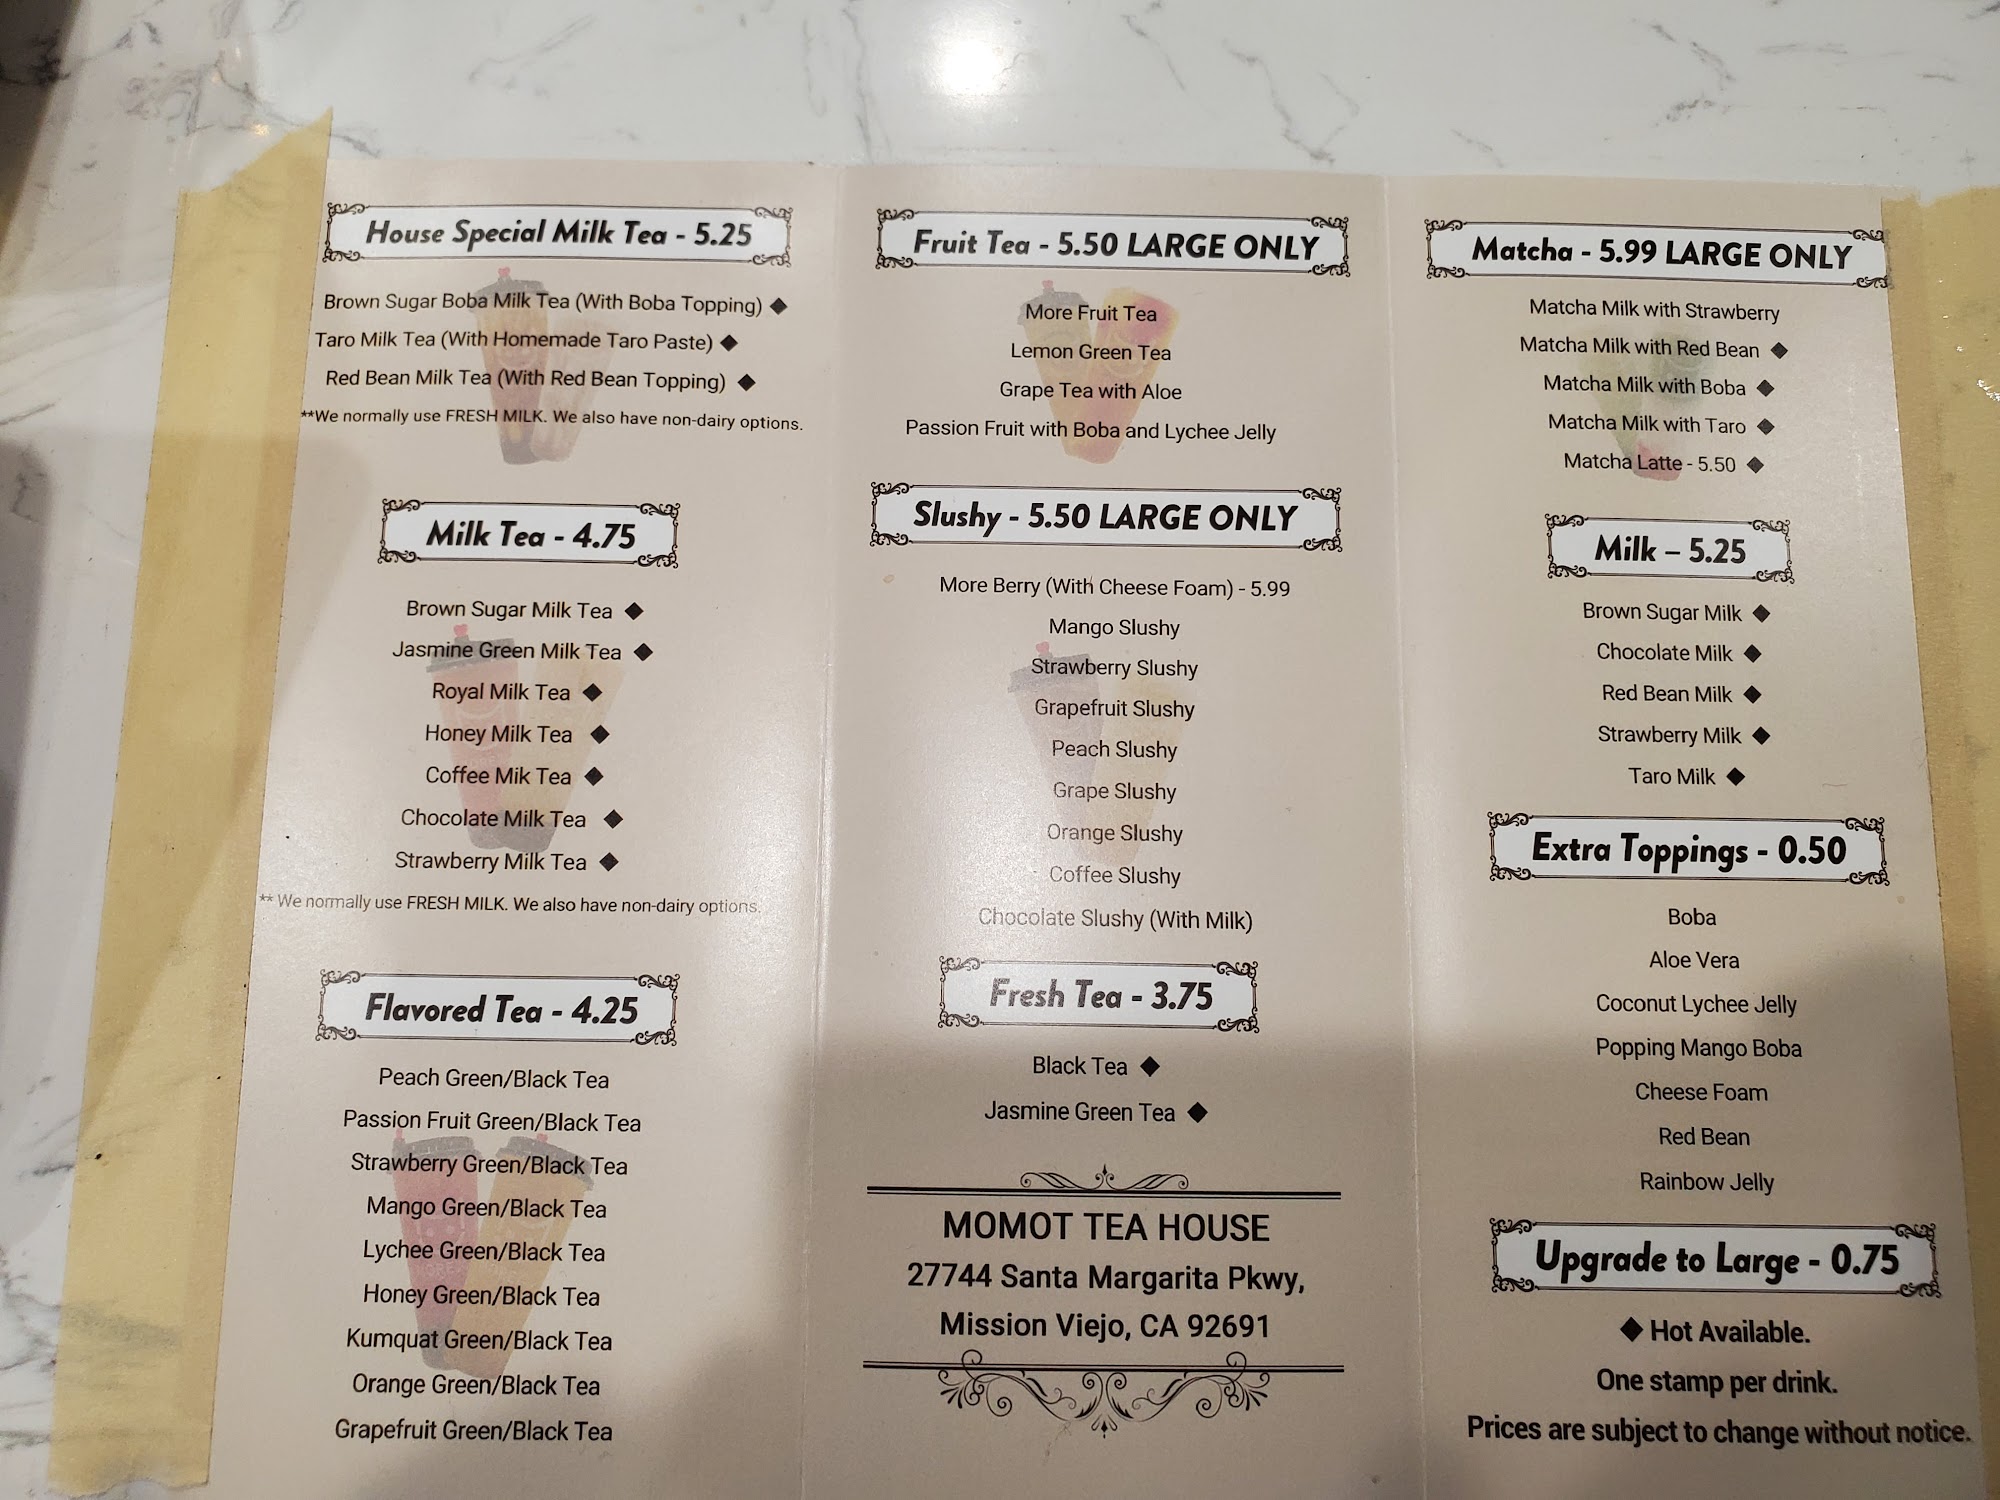 House Special Milk Tea - 5.25
Brown Sugar Boba Milk Tea (With Boba Topping) ◆
Taro Milk Tea (With Homemade Taro Paste) ◆
Red Bean Milk Tea (With Red Bean Topping) ◆
**We normally use FRESH MILK. We also have non-dairy options.
Milk Tea - 4.75
Brown Sugar Milk Tea ◆
Jasmine Green Milk Tea ◆
Royal Milk Tea ◆
Honey Milk Tea ◆
Coffee Mik Tea ◆
Chocolate Milk Tea ◆
Strawberry Milk Tea ◆
** We normally use FRESH MILK. We also have non-dairy options.
Flavored Tea - 4.25
Peach Green/Black Tea
Passion Fruit Green/Black Tea
Strawberry Green/Black Tea
Mango Green/Black Tea
Lychee Green/Black Tea
Honey Green/Black Tea
Kumquat Green/Black Tea
Orange Green/Black Tea
Grapefruit Green/Black Tea
Fruit Tea - 5.50 LARGE ONLY
More Fruit Tea
Lemon Green Tea
Grape Tea with Aloe
Passion Fruit with Boba and Lychee Jelly
Slushy - 5.50 LARGE ONLY
More Berry (With Cheese Foam) - 5.99
Mango Slushy
Strawberry Slushy
Grapefruit Slushy
Peach Slushy
Grape Slushy
Orange Slushy
Coffee Slushy
Chocolate Slushy (With Milk)
Fresh Tea - 3.75
Black Tea ◆
Jasmine Green Tea ◆
MOMOT TEA HOUSE
27744 Santa Margarita Pkwy,
Mission Viejo, CA 92691
Matcha - 5.99 LARGE ONLY
Matcha Milk with Strawberry
Matcha Milk with Red Bean ◆
Matcha Milk with Boba ◆
Matcha Milk with Taro ◆
Matcha Latte - 5.50 ◆
Milk – 5.25
Brown Sugar Milk ◆
Chocolate Milk ◆
Red Bean Milk ◆
Strawberry Milk ◆
Taro Milk ◆
Extra Toppings - 0.50
Boba
Aloe Vera
Coconut Lychee Jelly
Popping Mango Boba
Cheese Foam
Red Bean
Rainbow Jelly
Upgrade to Large - 0.75
◆ Hot Available.
One stamp per drink.
Prices are subject to change without notice.